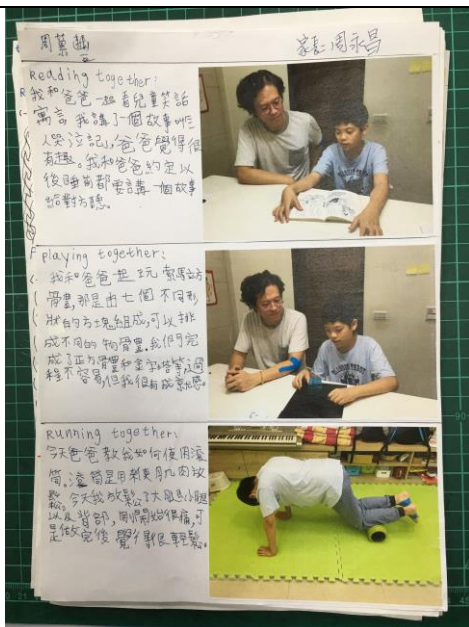 周
家長:周永昌
Reading together:
我和爸爸一起看兒童笑話
寓言,我講了一個故事叫三
人哭泣記,爸爸覺得很
有趣。我和爸爸約定以
後睡前都要講一個故事
給對方聽。
playing together:
我和爸爸一起玩索馬立方
骨豊,那是由七個不同形
狀的方塊組成,可以排
成不同的物骨豊。我們完
成了正方骨豊和金字塔等,過
程不容易,但我很有成就感。
Running together:
今天爸爸教我如何使用滾
筒,滾筒是用來讓肌肉放
鬆。今天我放鬆了大腿、小腿
以及背部,剛開始很痛,可
是做完後覺得很輕鬆。